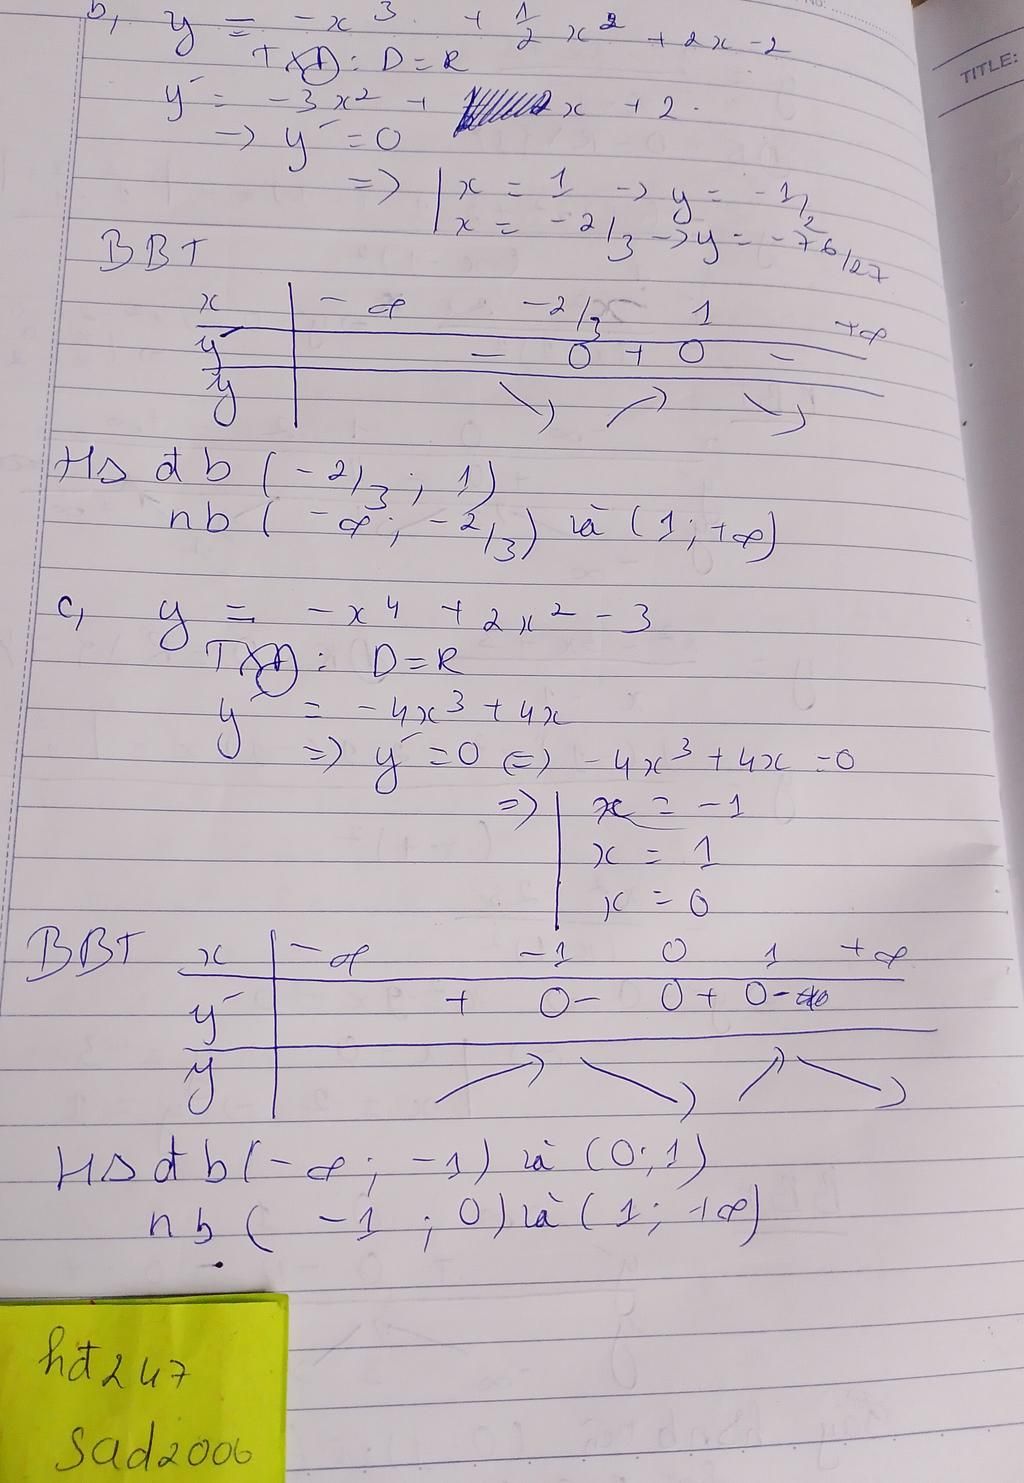 b, y = -x³ + 1/2 x² + 2x - 2
TXĐ : D = R
y' = -3x² + x + 2.
→ y' = 0
=> | x = 1 → y = -1/2
| x = -2/3 → y = -76/27
BBT
x | -∞ -2/3 1 +∞
y' | - 0 + 0 -
y | ↘ ↗ ↘
HS đb (-2/3 ; 1)
nb (-∞ ; -2/3) và (1 ; +∞)
c, y = -x⁴ + 2x² - 3
TXĐ : D = R
y' = -4x³ + 4x
=> y' = 0 (=) -4x³ + 4x = 0
=> | x = -1
| x = 1
| x = 0
BBT x | -∞ -1 0 1 +∞
y' | + 0 - 0 + 0 -
y | ↗ ↘ ↗ ↘
HS đb (-∞ ; -1) và (0 ; 1)
nb (-1 ; 0) và (1 ; +∞)
hđ247
sad2006
TITLE: